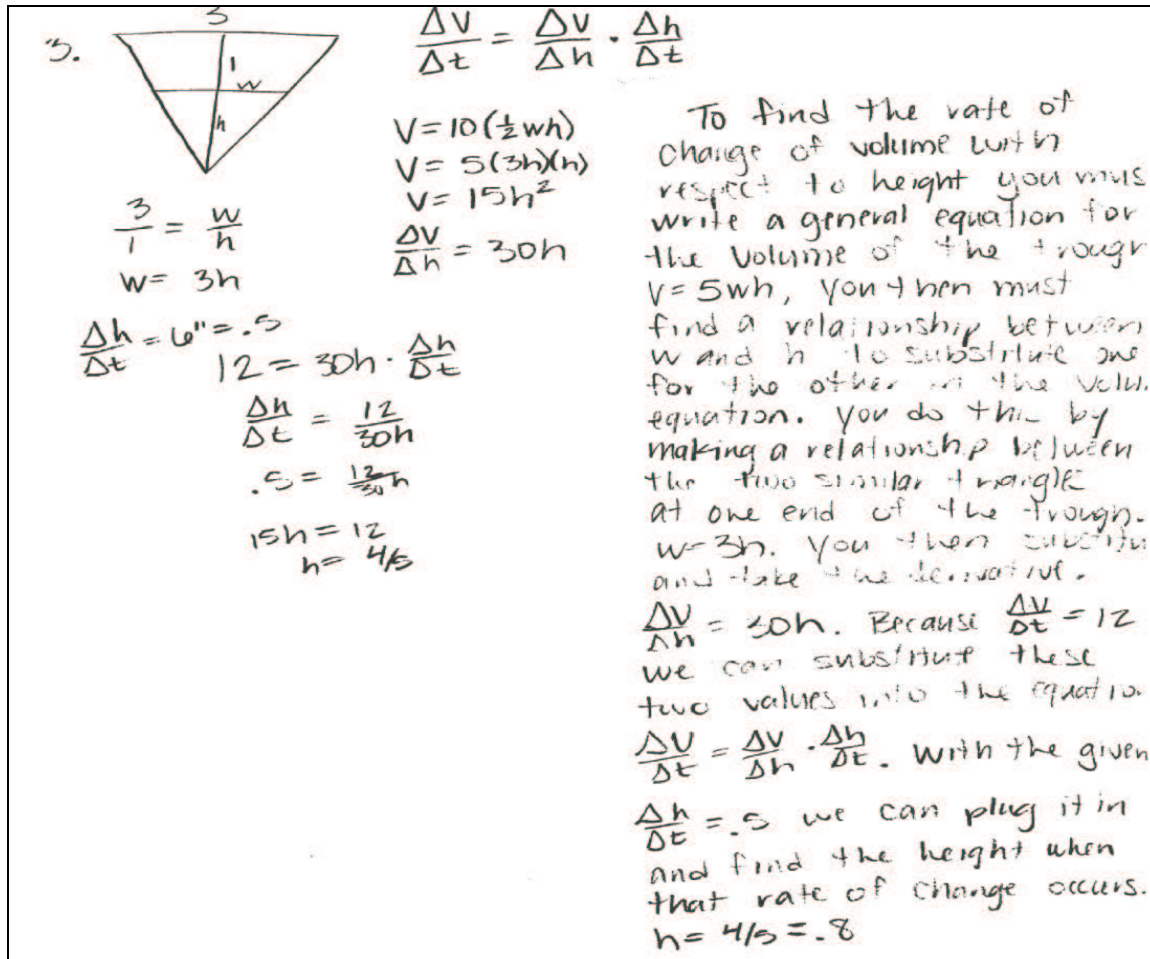 3.
3
1
w
h
3/1 = w/h
w = 3h
ΔV/Δt = ΔV/Δh · Δh/Δt
V = 10(½wh)
V = 5(3h)(h)
V = 15h²
ΔV/Δh = 30h
Δh/Δt = 6" = .5
12 = 30h · Δh/Δt
Δh/Δt = 12/30h
.5 = 12/30h
15h = 12
h = 4/5
To find the rate of
change of volume with
respect to height you mus
write a general equation for
the volume of the trough
V = 5wh, you then must
find a relationship between
w and h to substitute one
for the other in the volu
equation. You do this by
making a relationship between
the two similar triangle
at one end of the trough.
w=3h. You then substitu
and take the derivative.
ΔV/Δh = 30h. Because ΔV/Δt = 12
we can substitute these
two values into the equatio
ΔV/Δt = ΔV/Δh · Δh/Δt. With the given
Δh/Δt = .5 we can plug it in
and find the height when
that rate of change occurs.
h = 4/5 = .8